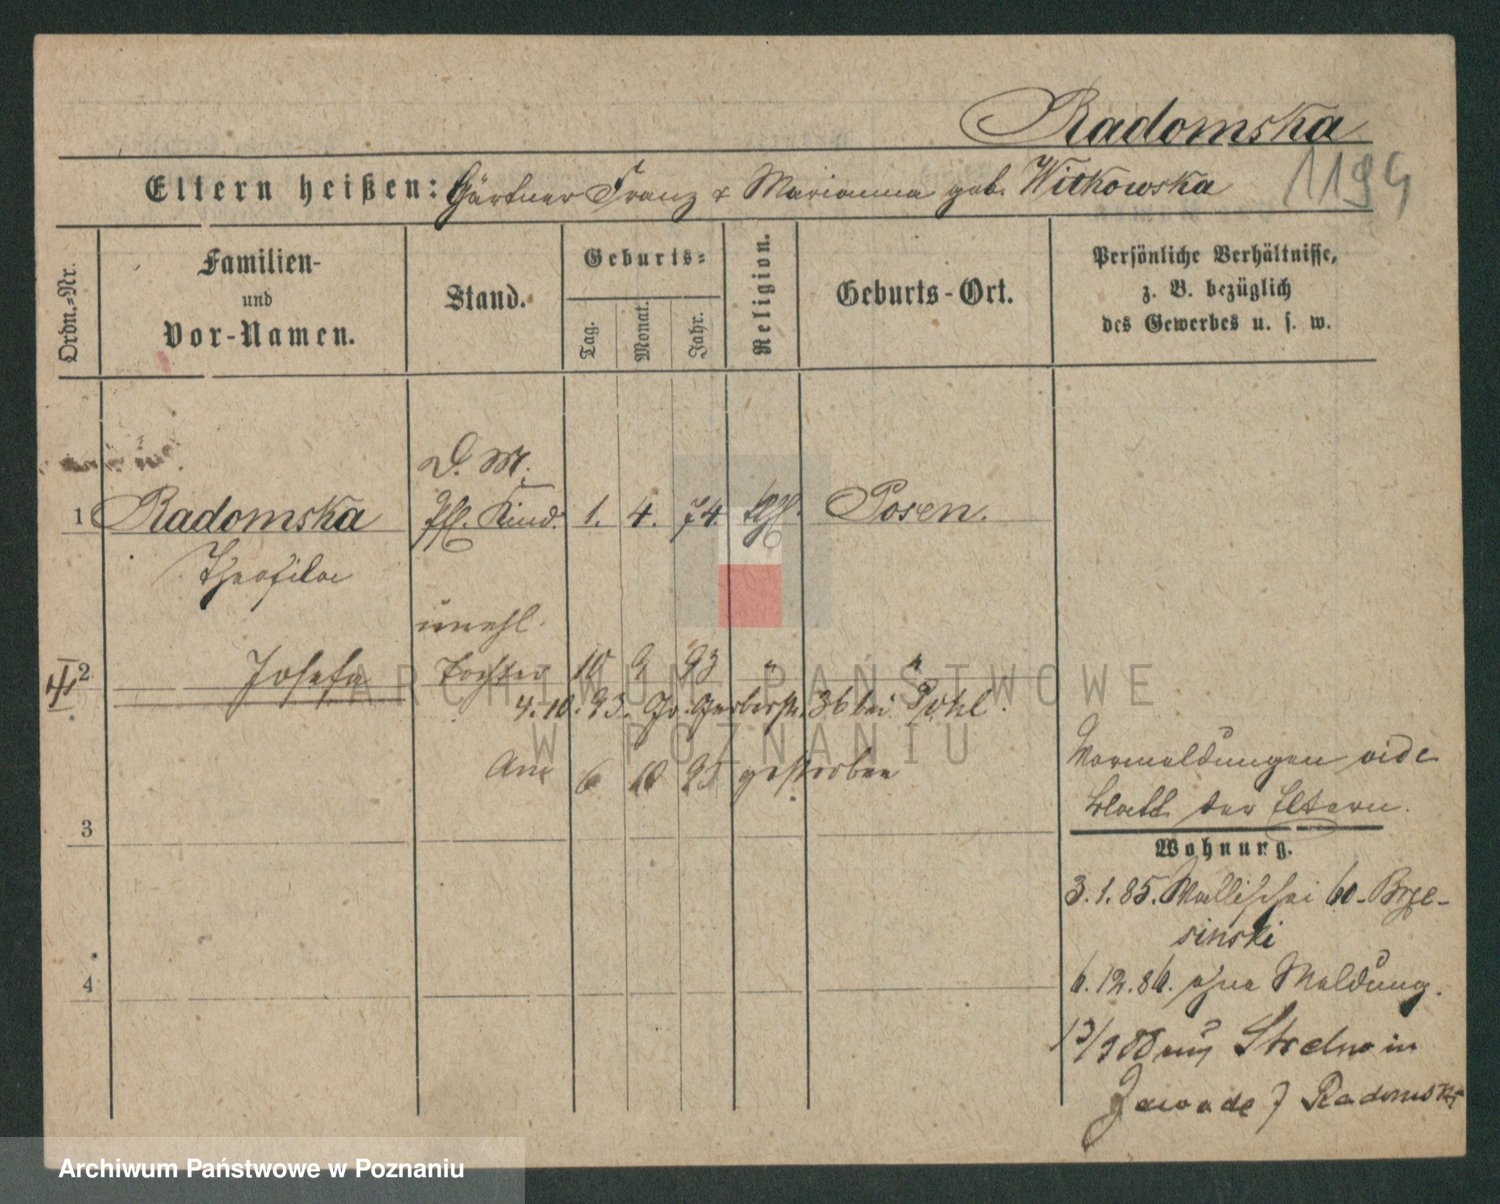 Radomska
1194
Eltern heißen: Gärtner Franz & Marianna geb. Witkowska
Ordn.-Nr.
Familien-
und
Vor-Namen.
Stand.
Geburts-
Tag.
Monat.
Jahr.
Religion.
Geburts-Ort.
Persönliche Verhältnisse,
z. B. bezüglich
des Gewerbes u. s. w.
D. M.
1 Radomska Kind. 1. 4. 74. Posen.
Theofila
unehl.
2 Josefa Tochter 10 9 93 " "
4.10.93. Gr. Gerberstr. 36 bei Pohl.
Am 6 10 95 gestorben
Vormeldungen vide
Blatt der Eltern.
3
Wohnung.
3.1.85. Wallischei 60 - Brze-
sinski
4
6.12.86. ohne Meldung.
Strelno in
Radomski
ARCHIWUM PAŃSTWOWE
W POZNANIU
Archiwum Państwowe w Poznaniu